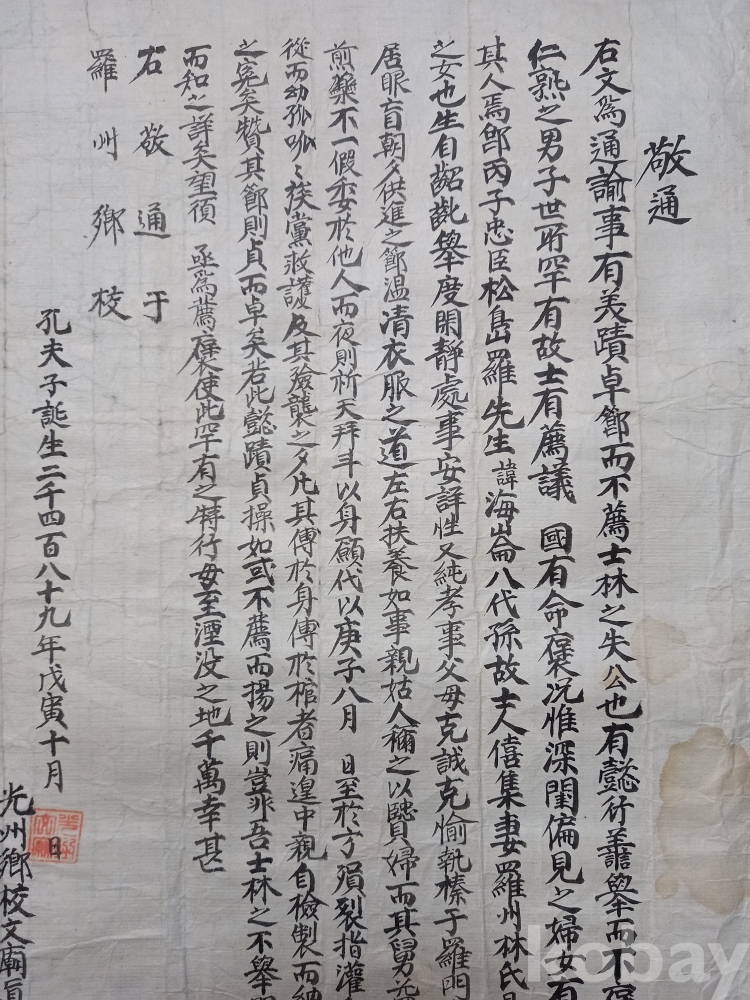 敬通
右文爲通諭事有義蹟卓節而不薦士林之失公也有懿行善擧而不
仁熟之男子世所罕有故士有薦議 國有命褒况惟深閨偏見之婦女有
其人焉卽丙子忠臣松嵒羅先生諱海崙八代孫故士人僖集妻羅州林氏
之女也生自齠齔擧度閑靜處事安詳性又純孝事父母克誠克愉執榛于羅門
居眼盲朝夕供進之節溫凊衣服之道左右扶養如事親姑人稱之以賢婦而其舅
煎藥不一假委於他人而夜則祈天拜斗以身願代以庚子八月 日至於方殞裂指灌
從而幼孤呱〻族黨救護及其殮襲之夕凡其傅於身傅於棺者痛遑中親自檢製而納
之寃矣贊其節則貞而卓矣若此懿蹟貞操如或不薦而揚之則豈非吾士林之不擧
而知之詳矣望須 亟爲薦褒使此罕有之特行毋至湮沒之地千萬幸甚
右敬通于
羅州鄕校
孔夫子誕生二千四百八十九年戊寅十月 日
光州鄕校文廟直
kobay